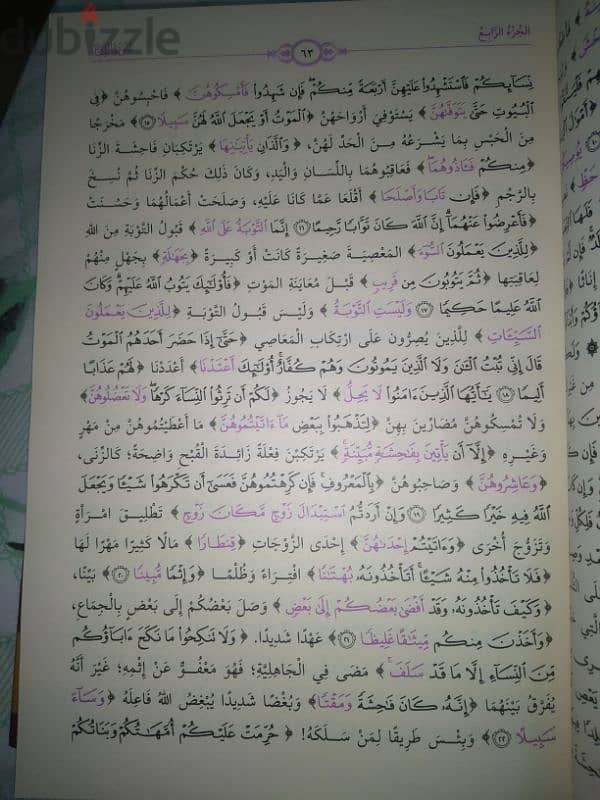 dubizzle
الجُزءُ الرَّابِع
٦٣
نِسَآئِكُمْ فَٱسْتَشْهِدُوا۟ عَلَيْهِنَّ أَرْبَعَةً مِّنكُمْ ۖ فَإِن شَهِدُوا۟ فَأَمْسِكُوهُنَّ﴾ فَاحْبِسُوهُنَّ ﴿فِى
ٱلْبُيُوتِ حَتَّىٰ يَتَوَفَّىٰهُنَّ﴾ يَسْتَوْفِيَ أَرْوَاحَهُنَّ ﴿ٱلْمَوْتُ أَوْ يَجْعَلَ ٱللَّهُ لَهُنَّ سَبِيلًا ١٥﴾ مَخْرَجًا
مِنَ الْحَبْسِ بِمَا يَشْرَعُهُ مِنَ الْحَدِّ لَهُنَّ، ﴿وَٱلَّذَانِ يَأْتِيَٰنِهَا﴾ يَرْتَكِبَانِ فَاحِشَةَ الزِّنَا
﴿مِنكُمْ فَـَٔاذُوهُمَا﴾ فَعَاقِبُوهُمَا بِاللِّسَانِ وَالْيَدِ، وَكَانَ ذَلِكَ حُكْمَ الزِّنَا ثُمَّ نُسِخَ
بِالرَّجْمِ ﴿فَإِن تَابَا وَأَصْلَحَا﴾ أَقْلَعَا عَمَّا كَانَا عَلَيْهِ، وَصَلَحَتْ أَعْمَالُهُمَا وَحَسُنَتْ
﴿فَأَعْرِضُوا۟ عَنْهُمَآ ۗ إِنَّ ٱللَّهَ كَانَ تَوَّابًا رَّحِيمًا ١٦ إِنَّمَا ٱلتَّوْبَةُ عَلَى ٱللَّهِ﴾ قَبُولُ التَّوْبَةِ مِنَ اللهِ
﴿لِلَّذِينَ يَعْمَلُونَ ٱلسُّوٓءَ﴾ الْمَعْصِيَةَ صَغِيرَةً كَانَتْ أَوْ كَبِيرَةً ﴿بِجَهَٰلَةٍ﴾ بِجَهْلٍ مِنْهُمْ
لِعَاقِبَتِهَا ﴿ثُمَّ يَتُوبُونَ مِن قَرِيبٍ﴾ قَبْلَ مُعَايَنَةِ الْمَوْتِ ﴿فَأُو۟لَٰٓئِكَ يَتُوبُ ٱللَّهُ عَلَيْهِمْ ۗ وَكَانَ
ٱللَّهُ عَلِيمًا حَكِيمًا ١٧ وَلَيْسَتِ ٱلتَّوْبَةُ﴾ وَلَيْسَ قَبُولُ التَّوْبَةِ ﴿لِلَّذِينَ يَعْمَلُونَ
ٱلسَّيِّـَٔاتِ﴾ لِلَّذِينَ يُصِرُّونَ عَلَى ارْتِكَابِ الْمَعَاصِي ﴿حَتَّىٰٓ إِذَا حَضَرَ أَحَدَهُمُ ٱلْمَوْتُ
قَالَ إِنِّى تُبْتُ ٱلْـَٰٔنَ وَلَا ٱلَّذِينَ يَمُوتُونَ وَهُمْ كُفَّارٌ ۚ أُو۟لَٰٓئِكَ أَعْتَدْنَا﴾ أَعْدَدْنَا ﴿لَهُمْ عَذَابًا
أَلِيمًا ١٨ يَٰٓأَيُّهَا ٱلَّذِينَ ءَامَنُوا۟ لَا يَحِلُّ﴾ لَا يَجُوزُ ﴿لَكُمْ أَن تَرِثُوا۟ ٱلنِّسَآءَ كَرْهًا ۖ وَلَا تَعْضُلُوهُنَّ﴾
وَلَا تُمْسِكُوهُنَّ مُضَارِّينَ بِهِنَّ ﴿لِتَذْهَبُوا۟ بِبَعْضِ مَآ ءَاتَيْتُمُوهُنَّ﴾ مَا أَعْطَيْتُمُوهُنَّ مِنْ مَهْرٍ
وَغَيْرِهِ ﴿إِلَّآ أَن يَأْتِينَ بِفَٰحِشَةٍ مُّبَيِّنَةٍ﴾ يَرْتَكِبْنَ فِعْلَةً زَائِدَةَ الْقُبْحِ وَاضِحَةً؛ كَالزِّنَى،
﴿وَعَاشِرُوهُنَّ﴾ وَصَاحِبُوهُنَّ ﴿بِٱلْمَعْرُوفِ ۚ فَإِن كَرِهْتُمُوهُنَّ فَعَسَىٰٓ أَن تَكْرَهُوا۟ شَيْـًٔا وَيَجْعَلَ
ٱللَّهُ فِيهِ خَيْرًا كَثِيرًا ١٩ وَإِنْ أَرَدتُّمُ ٱسْتِبْدَالَ زَوْجٍ مَّكَانَ زَوْجٍ﴾ تَطْلِيقَ امْرَأَةٍ
وَتَزَوُّجَ أُخْرَى ﴿وَءَاتَيْتُمْ إِحْدَىٰهُنَّ﴾ إِحْدَى الزَّوْجَاتِ ﴿قِنطَارًا﴾ مَالًا كَثِيرًا مَهْرًا لَهَا
﴿فَلَا تَأْخُذُوا۟ مِنْهُ شَيْـًٔا ۚ أَتَأْخُذُونَهُۥ بُهْتَٰنًا﴾ افْتِرَاءً وَظُلْمًا ﴿وَإِثْمًا مُّبِينًا ٢٠﴾ بَيِّنًا،
﴿وَكَيْفَ تَأْخُذُونَهُۥ وَقَدْ أَفْضَىٰ بَعْضُكُمْ إِلَىٰ بَعْضٍ﴾ وَصَلَ بَعْضُكُمْ إِلَى بَعْضٍ بِالْجِمَاعِ،
﴿وَأَخَذْنَ مِنكُم مِّيثَٰقًا غَلِيظًا ٢١﴾ عَهْدًا شَدِيدًا. ﴿وَلَا تَنكِحُوا۟ مَا نَكَحَ ءَابَآؤُكُم
مِّنَ ٱلنِّسَآءِ إِلَّا مَا قَدْ سَلَفَ﴾ مَضَى فِي الْجَاهِلِيَّةِ؛ فَهُوَ مَعْفُوٌّ عَنْ إِثْمِهِ؛ غَيْرَ أَنَّهُ
يُفَرَّقُ بَيْنَهُمَا ﴿إِنَّهُۥ كَانَ فَٰحِشَةً وَمَقْتًا﴾ وَبُغْضًا شَدِيدًا يُبْغِضُ اللهُ فَاعِلَهُ ﴿وَسَآءَ
سَبِيلًا ٢٢﴾ وَبِئْسَ طَرِيقًا لِمَنْ سَلَكَهُ! ﴿حُرِّمَتْ عَلَيْكُمْ أُمَّهَٰتُكُمْ وَبَنَاتُكُمْ